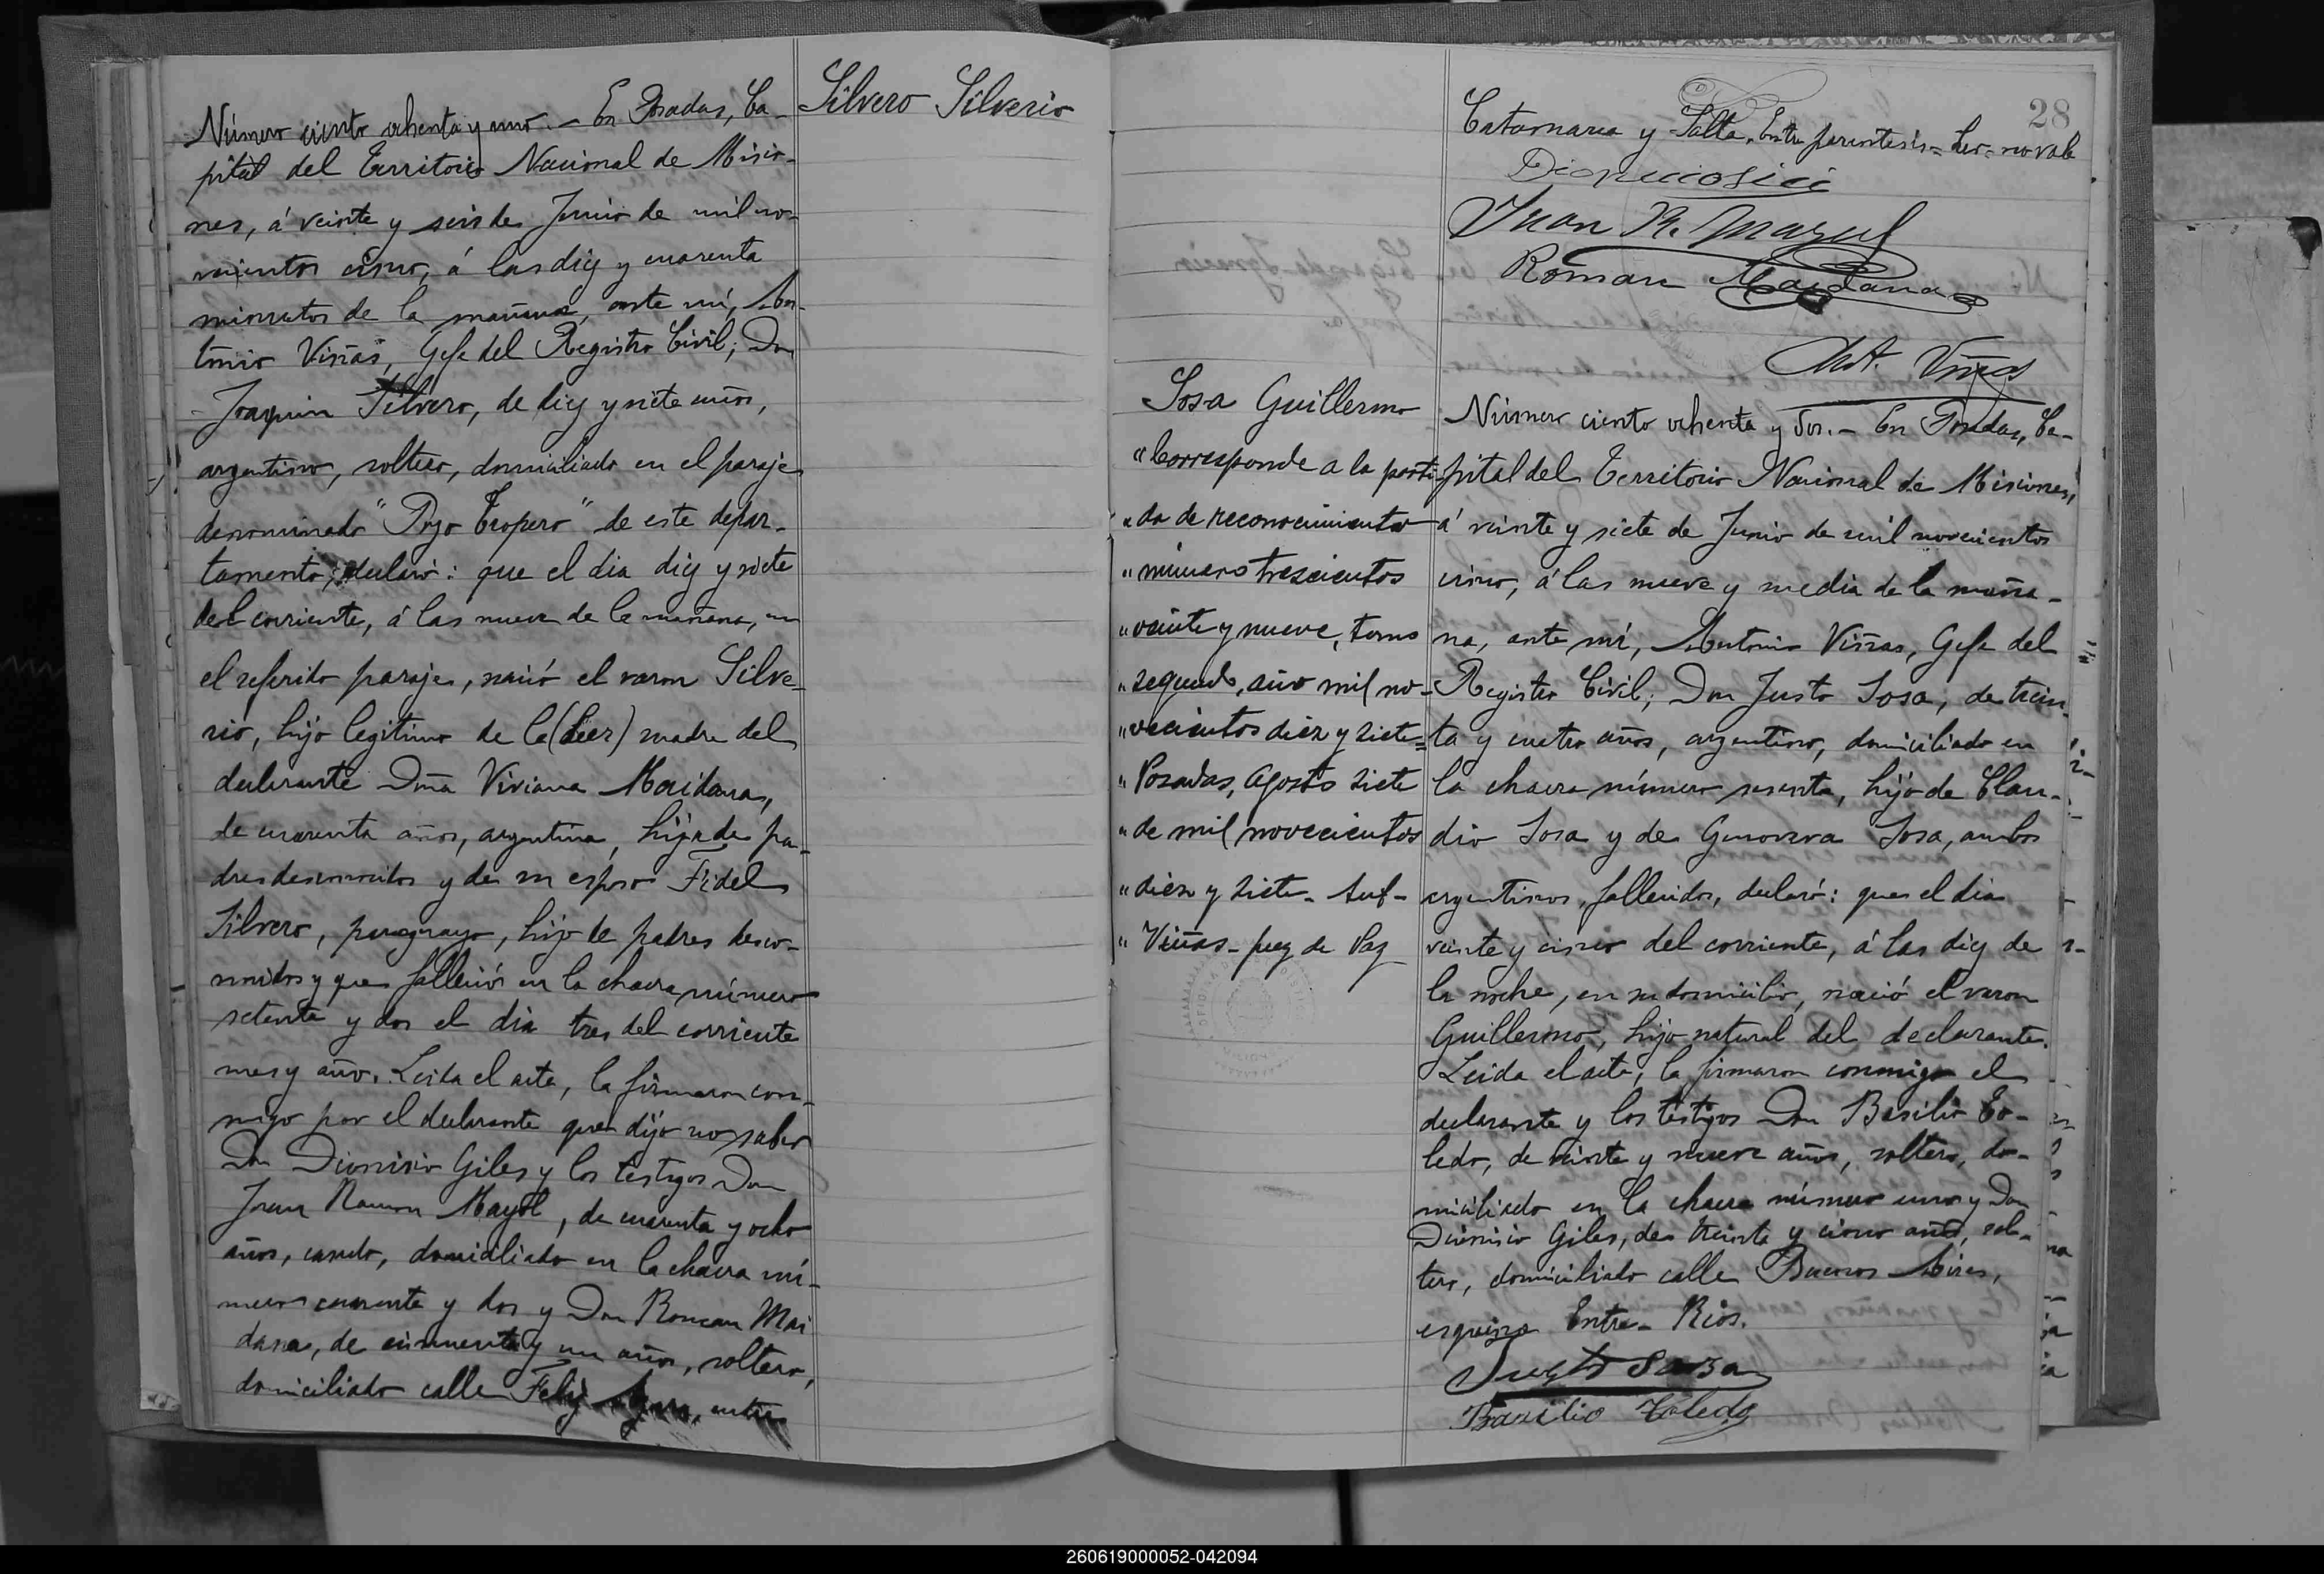 Silvero Silverio
Número ciento ochenta y uno.- En Posadas, Ca-
pital del Territorio Nacional de Misio-
nes, á veinte y seis de Junio de mil no-
vecientos cinco, á las diez y cuarenta
minutos de la mañana, ante mí, An-
tonio Viñas, Gefe del Registro Civil; Don
Joaquin Silvero, de diez y siete años,
argentino, soltero, domiciliado en el paraje
denominado "Pozo Tropero" de este depar-
tamento, declaró: que el dia diez y siete
del corriente, á las nueve de la mañana, en
el referido paraje, nació el varon Silve-
rio, hijo legitimo de la (Leer) madre del
declarante Doña Viviana Maidana,
de cuarenta años, argentina, hija de pa-
dres desconocidos y de su esposo Fidel
Silvero, paraguayo, hijo de padres desco-
nocidos y que falleció en la chacra número
setenta y dos el dia tres del corriente
mes y año. Leida el acta, la firmaron con-
migo por el declarante que dijo no saber
Don Dionisio Giles y los testigos Don
Juan Ramon Mayol, de cuarenta y ocho
años, casado, domiciliado en la chacra nú-
mero cuarenta y dos y Don Roman Mai
dana, de cincuenta y un años, soltero,
domiciliado calle Feliz Azara, entre
28
Catamarca y Salta. Entre parentesis = Leer = no vale
Juan R. Mayol
Roman Maidana
Ant. Viñas
Sosa Guillermo
"Corresponde a la parti-
"da de reconocimiento
"número trescientos
"veinte y nueve, tomo
"segundo, año mil no-
"vecientos diez y siete=
"Posadas, Agosto siete
"de mil novecientos
"diez y siete -
"Viñas - Juez de Paz
Número ciento ochenta y dos.- En Posadas, Ca-
pital del Territorio Nacional de Misiones,
á veinte y siete de Junio de mil novecientos
cinco, á las nueve y media de la maña-
na, ante mí, Antonio Viñas, Gefe del
Registro Civil; Don Justo Sosa, de trein-
ta y cuatro años, argentino, domiciliado en
la chacra número sesenta, hijo de Clau-
dio Sosa y de Genoveva Sosa, ambos
argentinos, fallecidos, declaró: que el dia
veinte y cinco del corriente, á las diez de
la noche, en su domicilio, nació el varon
Guillermo, hijo natural del declarante.
Leida el acta, la firmaron conmigo el
declarante y los testigos Don Basilio To-
ledo, de veinte y nueve años, soltero, do-
miciliado en la chacra número uno y Don
Dionisio Giles, de treinta y cinco años, sol-
tero, domiciliado calle Buenos Aires,
esquina Entre-Rios.
Justo Sosa
Bazilio Toledo
260619000052-042094